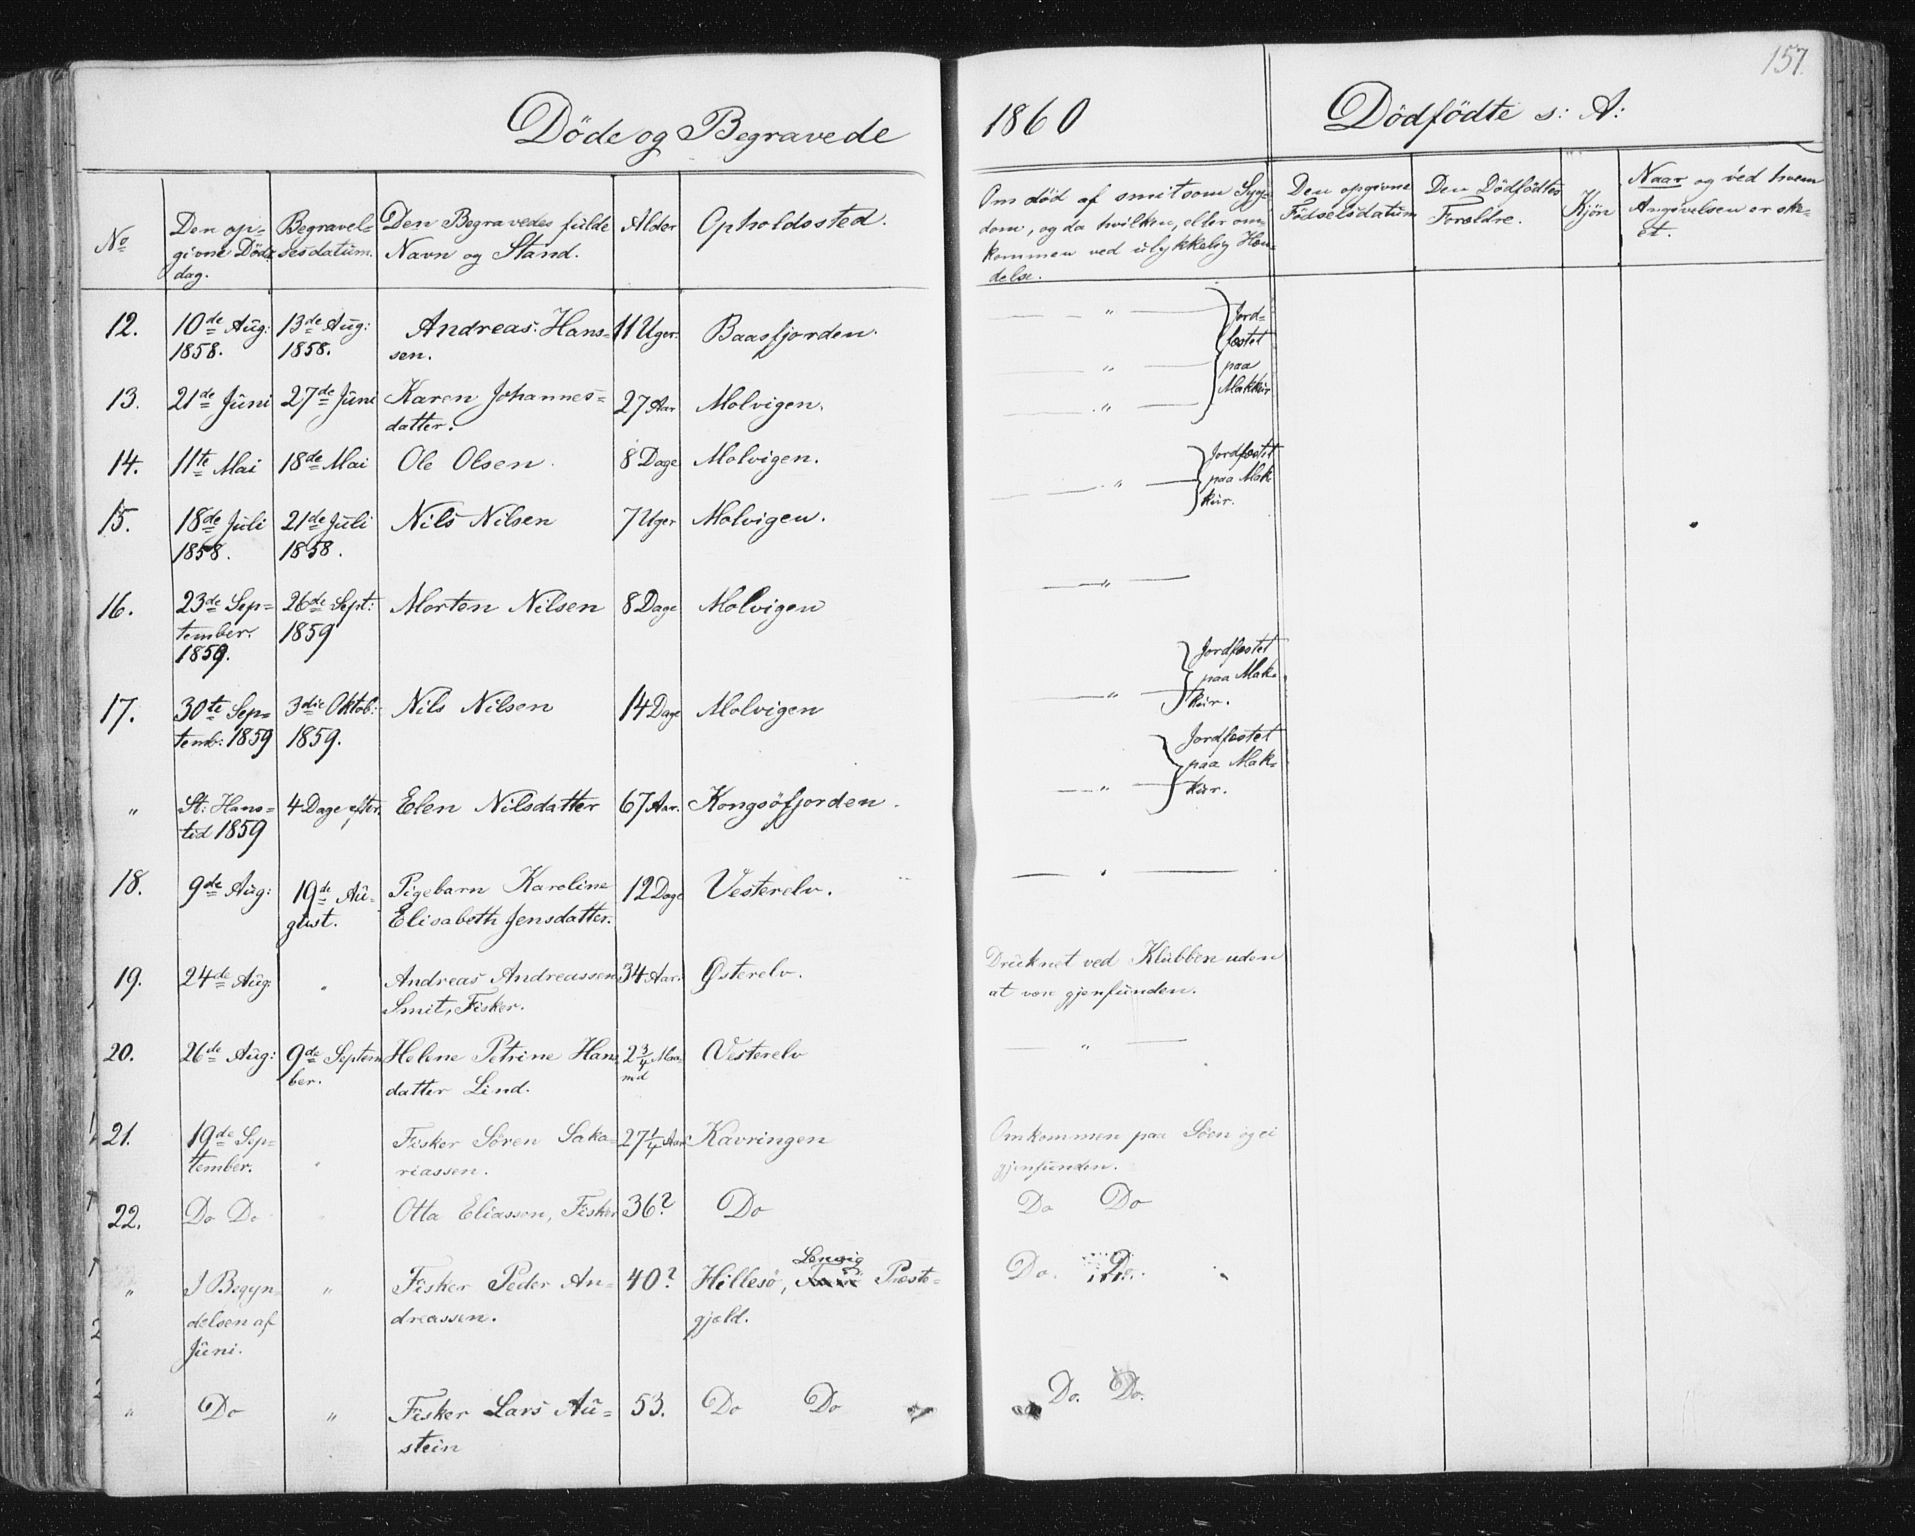 157.
Döde og Begravede 1860 Dödfödte s: A:
No
Den opgivne Dödsdag.
Begravelsesdatum.
Den Begravedes fulde Navn og Stand.
Alder
Opholdssted.
Om död af smitsom Sygdom, og da hvilken, eller omkommen ved ulykkelig Hændelse.
Den opgivne Födselsdatum
Den Dödfödtes Forældre.
Kjön
Naar og ved hvem Angivelsen er skeet.
12. 10de Aug: 1858. 13de Aug: 1858. Andreas Hanssen. 11 Uger. Baasfjorden. — " — Jordfæstet paa Makkur
13. 21de Juni 27de Juni Karen Johannesdatter. 27 Aar Molvigen. — " —
14. 11te Mai 18de Mai Ole Olsen. 8 Dage Molvigen. — " —
15. 18de Juli 1858. 21de Juli 1858. Nils Nilsen 7 Uger Molvigen. — " — Jordfæstet paa Makkur.
16. 23de September. 1859. 26de Sept: 1859 Morten Nilsen 8 Dage Molvigen — " —
17. 30te Septemb: 1859 3die Oktob: 1859. Nils Nilsen 14 Dage Molvigen — " — Jordfæstet paa Makkur.
" St: Hanstid 1859 4 Dage efter. Elen Nilsdatter 67 Aar. Kongsöfjorden. — " — Jordfæstet paa Makkur.
18. 9de Aug: 19de August. Pigebarn Karoline Elisabeth Jensdatter. 12 Dage Vesterelv. — " —
19. 24de Aug: " Andreas Andreassen Smit, Fisker. 34 Aar. Østerelv. Druknet ved Klubben uden at være gjenfunden.
20. 26de Aug: 9de September. Helene Petrine Hansdatter Lind. 2 3/4 Maaned Vesterelv — " —
21. 19de September. " Fisker Sören Sakariassen. 27 1/4 Aar Kavringen Omkommen paa Söen og ei gjenfunden.
22. Do Do " Otto Eliassen, Fisker 36? Do Do Do
" I Begyndelsen af Juni. " Fisker Peder Andreassen. 40? Hillesö, Lenvig Præstegjeld. Do. Do.
" Do " Fisker Lars Austein 53. Do Do Do. Do.